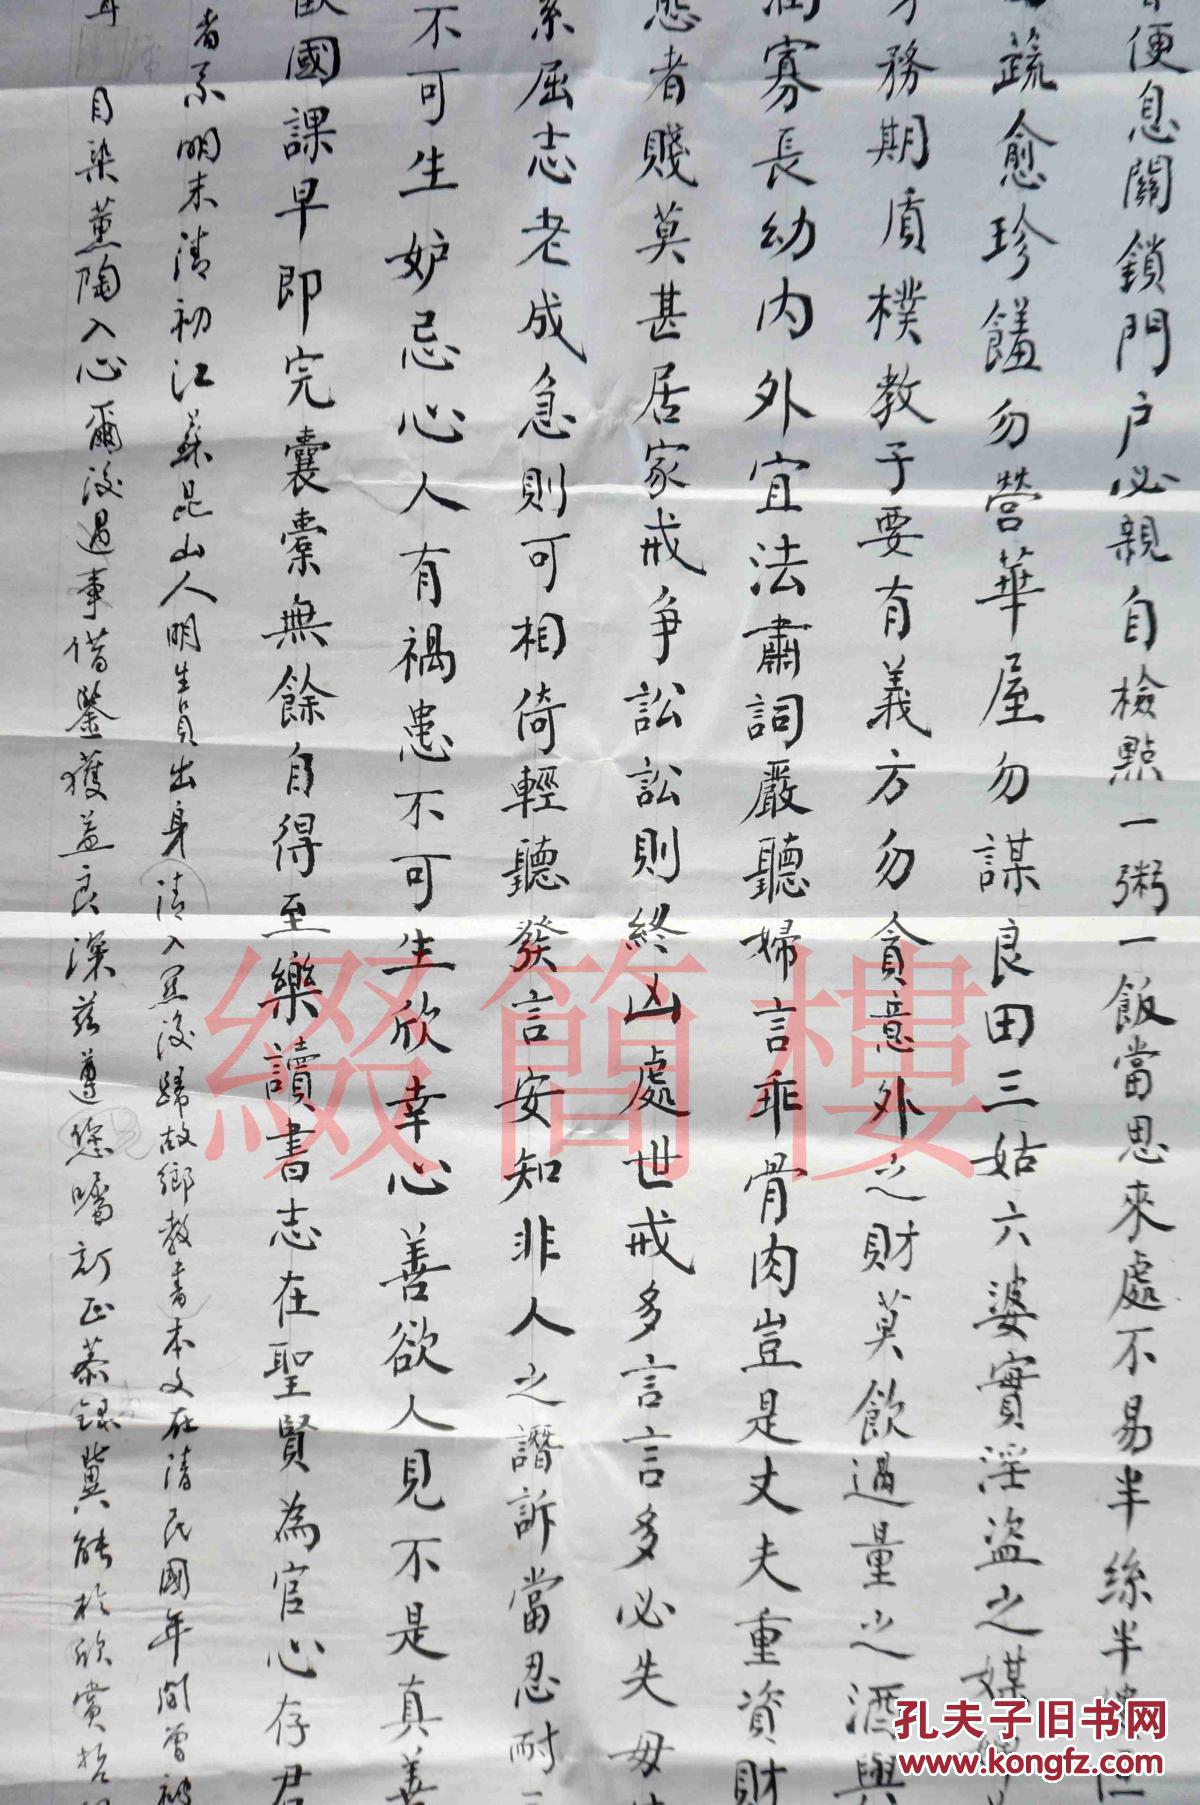 便息關鎖門户必親自檢點一粥一飯當思來處不易半絲半縷恒
蔬愈珍饈勿營華屋勿謀良田三姑六婆實淫盜之媒
務期質樸教子要有義方勿貪意外之財莫飲過量之酒與
潤寡長幼內外宜法肅詞嚴聽婦言乖骨肉豈是丈夫重資財
態者賤莫甚居家戒争訟訟則終凶處世戒多言言多必失毋
屈志老成急則可相倚輕聽發言安知非人之譖訴當忍耐三
不可生妒忌心人有禍患不可生欣幸心善欲人見不是真善
歡國課早即完囊橐無餘自得至樂讀書志在聖賢為官心存君
者系明末清初江蘇昆山人明生員出身清入關後歸故鄉教書本文在清民國年間曾被
目染薰陶入心爾後遇事借鑒獲益良深茲遵您囑訂正恭錄冀能於欣賞
綴簡樓
孔夫子旧书网
www.kongfz.com